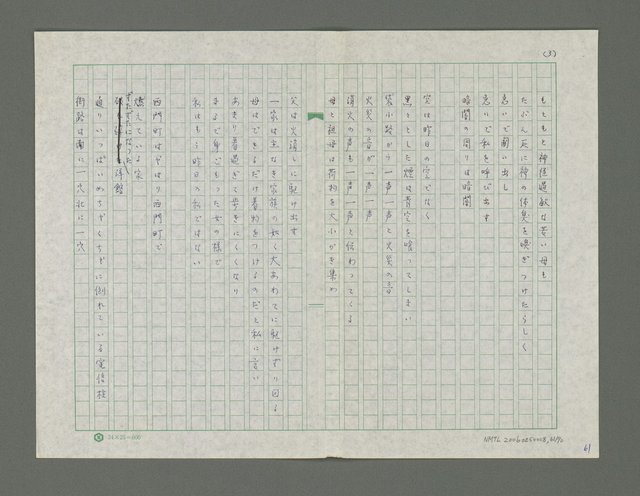 (3)
もともと神経過敏な若い母も
たぶん灰に神の体臭を嗅ぎつけたらしく
急いで図い出し
急いで私を呼び出す
暗闇の周りは暗闇
空は昨日の空でなく
黒々とした煙は青空を喰ってしまい
袋小路から一声一声と火災の音
火災の音が一声一声
消火の声も一声一声と伝わってくる
母と祖母は荷物を大小かき集め
父は火消しに駆け出す
一家は主なき家族の如く大あわてに駆けずり回る
母はできるだけ着物をつけるのだと私に言い
あまり着過ぎて歩きにくくなり
まるで身ごもった女の様で
私はもう昨日の私ではない
西門町はやはり西門町で
燃えている家
ずたずたになった
洋館
通りいっぱいめちゃくちゃに倒れている電信柱
街路は南に一穴北に一穴
24×25=600
NMTL 2006025000
61